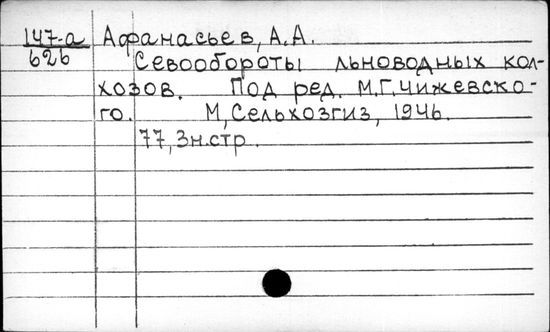 147-а Афанасьев, А.А.
626 Севообороты льноводных кол-
хозов. Под ред. М.Г.Чижевско-
го. М, Сельхозгиз, 1946.
77, 3н.стр.